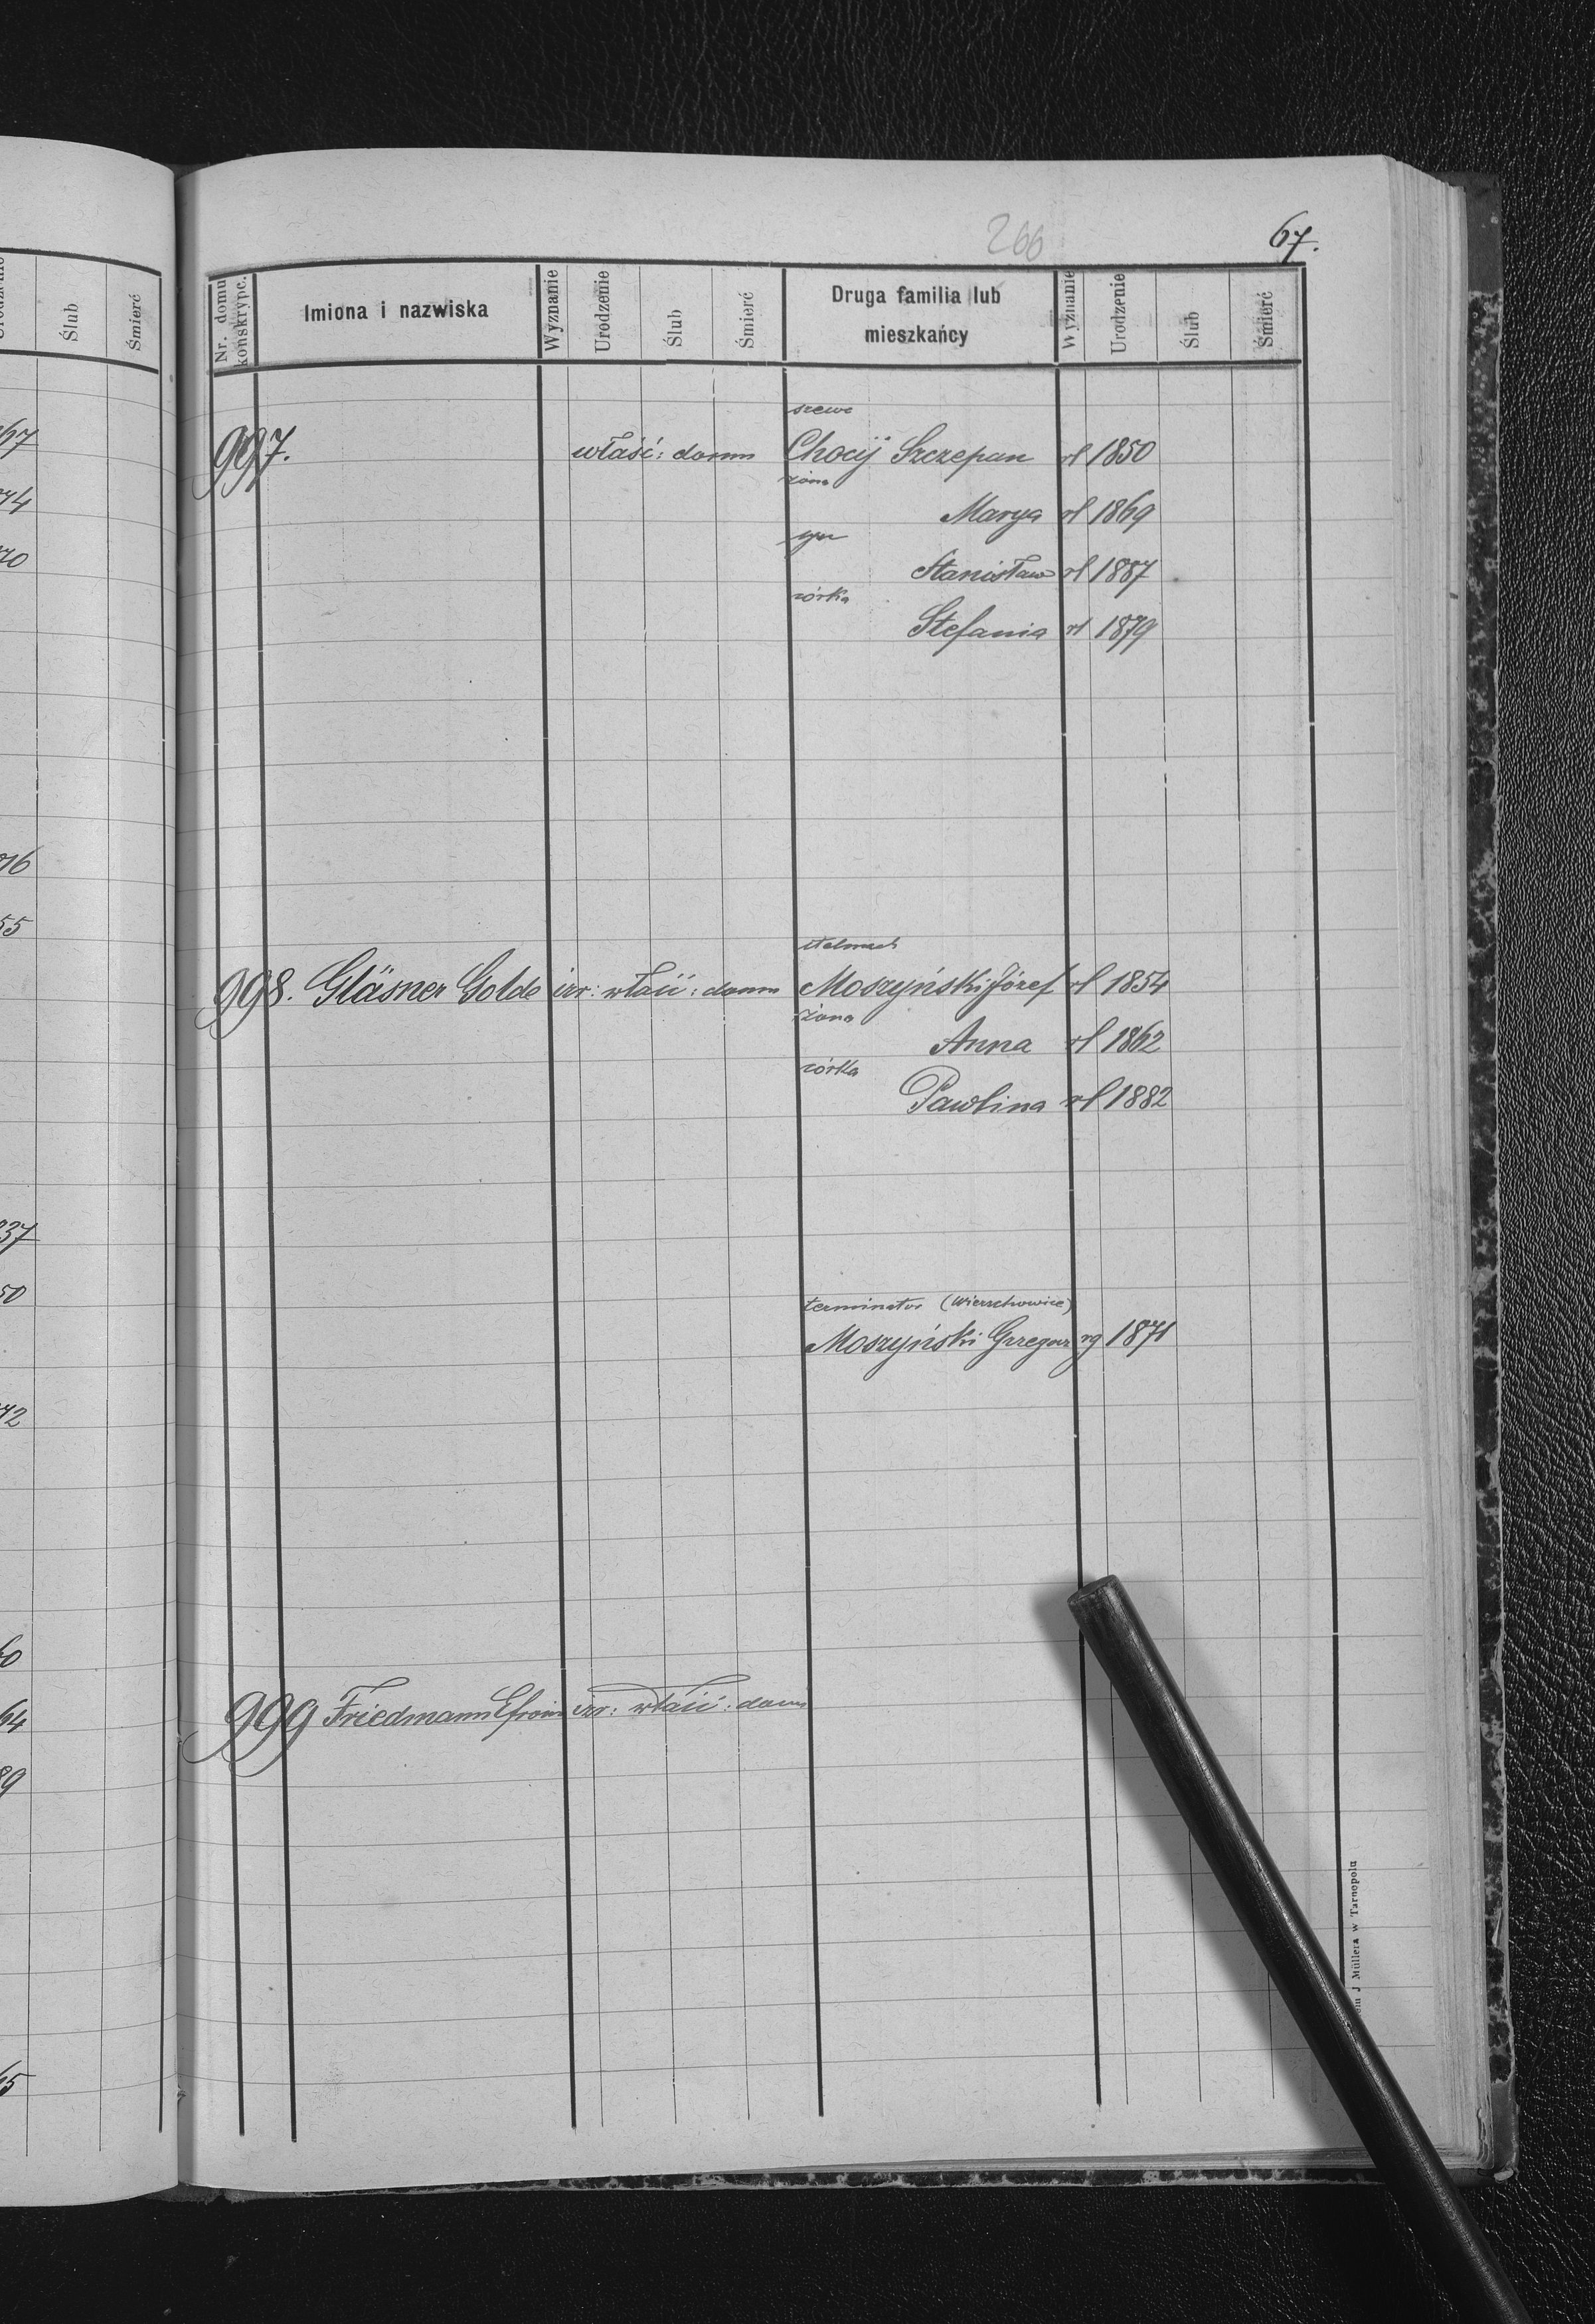 Urodzenie
Ślub
Śmierć
67
74
70
76
55
837
50
72
60
64
89
65
266
67.
Nr. domu konskrypc.
Imiona i nazwiska
Wyznanie
Urodzenie
Ślub
Śmierć
Druga familia lub
mieszkańcy
Wyznanie
Urodzenie
Ślub
Śmierć
szewc
997. właść: domu Chocij Szczepan rł 1850
żona
Marya rł 1869
syn
Stanisław rł 1887
córka
Stefania rł 1879
stelmach
998. Gläsner Golde izr: właść: domu Moszyński Józef rł 1854
żona
Anna rł 1862
córka
Pawlina rł 1882
terminator (Wierzchowice)
Moszyński Grzegorz rg 1871
999 Friedmann Efroim izr: właść: domu
J Müllera w Tarnopolu